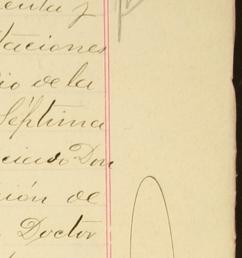 enta y
taciones
io de la
Séptima
nciado Don
ción de
Doctor